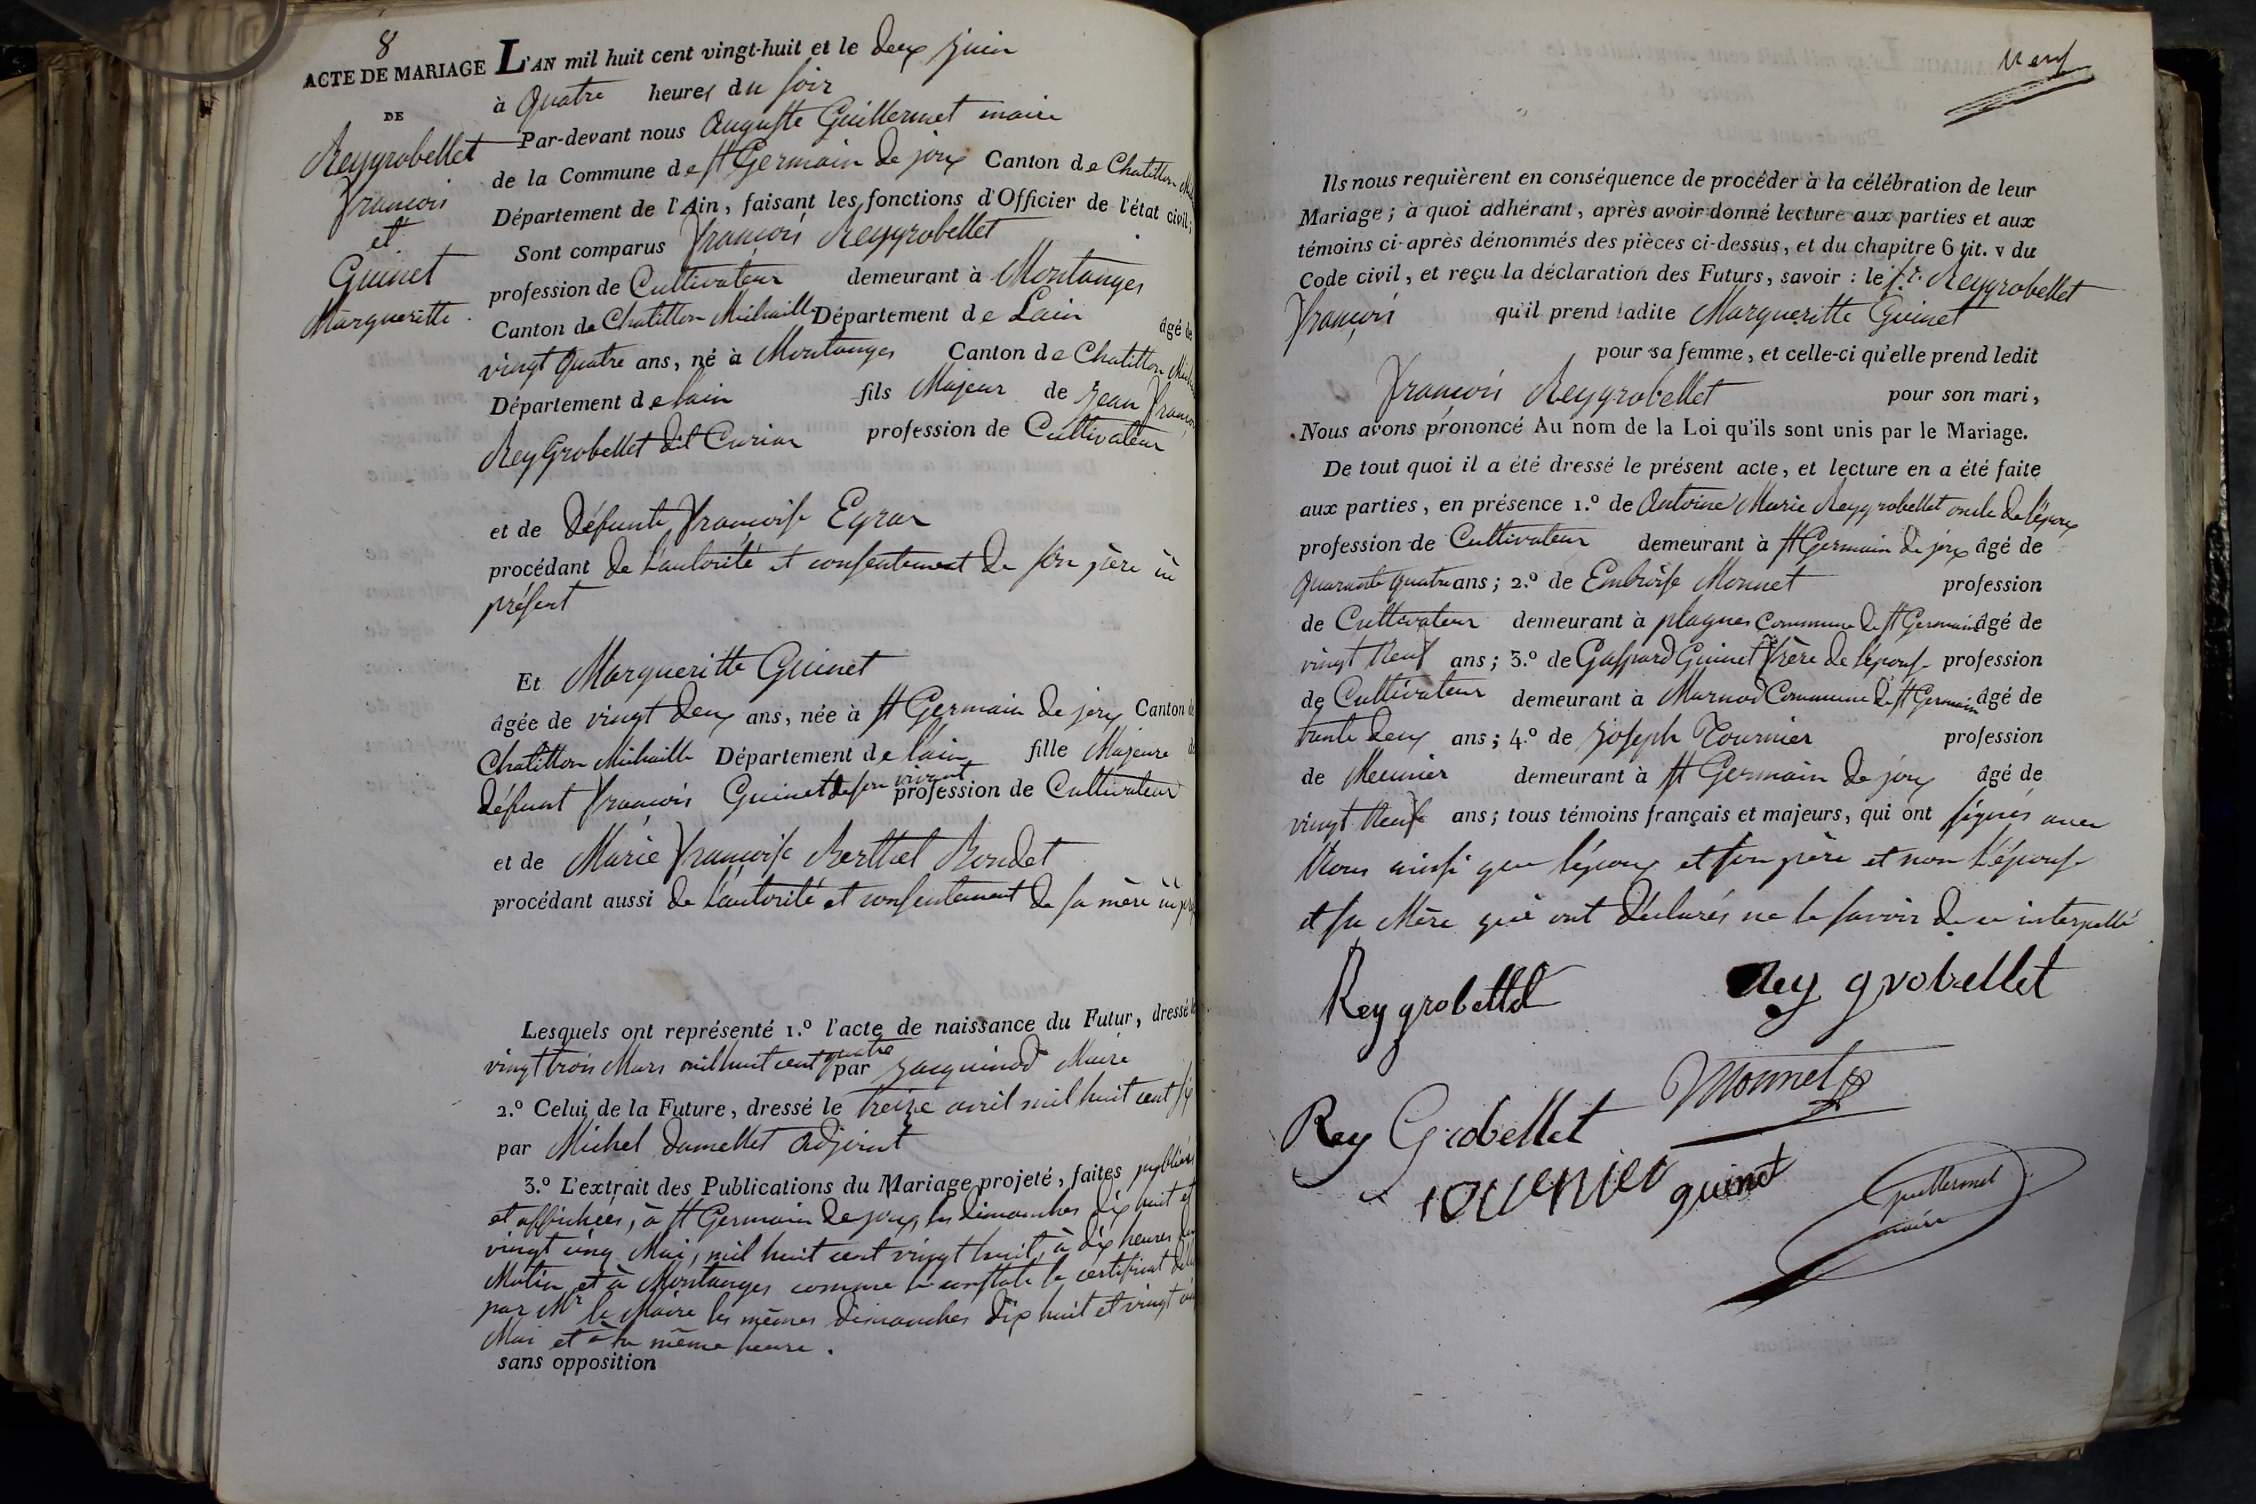 8
ACTE DE MARIAGE
DE
Reygrobellet
François
et
Guinet
Margueritte.
L'AN mil huit cent vingt-huit et le deux juin
à quatre heures du soir
Par-devant nous Auguste Guillermet maire
de la Commune de St Germain de joux Canton de Chatillon
Département de l'Ain, faisant les fonctions d'Officier de l'état civil;
Sont comparus François Reygrobellet
profession de Cultivateur demeurant à Montanges
Canton de Chatillon Michaille Département de Lain âgé de
vingt quatre ans, né à Montanges Canton de Chatillon
Département de lain fils Majeur de Jean François
Rey Grobellet dit Curian profession de Cultivateur
et de défunte Françoise
procédant de l'autorité et consentement de son père ici
présent
Et Margueritte Guinet
âgée de vingt deux ans, née à St Germain de joux Canton de
Chatillon Michaille Département de lain fille Majeure de
défunt François Guinet de son vivant profession de Cultivateur
et de Marie Françoise Berthet Bondet
procédant aussi de l'autorité et consentement de sa mère ici
Lesquels ont représenté 1.º l'acte de naissance du Futur, dressé le
vingt trois Mars mil huit cent quatre par Jacquinod Maire
2.º Celui de la Future, dressé le treize avril mil huit cent six
par Michel adjoint
3.º L'extrait des Publications du Mariage projeté, faites publiées
et affichées, à St Germain de joux, les dimanches dix huit et
vingt cinq Mai, mil huit cent vingt huit, à dix heures du
Matin, et à Montanges comme le constate le certificat
par Mr le Maire les mêmes dimanches dix huit et vingt cinq
Mai et à la même heure.
sans opposition
neuf
Ils nous requièrent en conséquence de procéder à la célébration de leur
Mariage; à quoi adhérant, après avoir donné lecture aux parties et aux
témoins ci-après dénommés des pièces ci-dessus, et du chapitre 6 tit. v du
Code civil, et reçu la déclaration des Futurs, savoir: le sr. Reygrobellet
François qu'il prend ladite Margueritte Guinet
pour sa femme, et celle-ci qu'elle prend ledit
François Reygrobellet pour son mari,
Nous avons prononcé Au nom de la Loi qu'ils sont unis par le Mariage.
De tout quoi il a été dressé le présent acte, et lecture en a été faite
aux parties, en présence 1.º de Antoine Marie Reygrobellet oncle de l'époux
profession de Cultivateur demeurant à St Germain de joux âgé de
quarante quatre ans; 2.º de Embroise Monnet profession
de Cultivateur demeurant à plagnes Commune de St Germain âgé de
vingt neuf ans; 3.º de Gaspard Guinet frère de l'épouse profession
de Cultivateur demeurant à Marnod Commune de St Germain âgé de
trente deux ans; 4.º de Joseph Tournier profession
de Meunier demeurant à St Germain de joux âgé de
vingt neuf ans; tous témoins français et majeurs, qui ont signés avec
Nous ainsi que l'époux et son père et non l'épouse
et sa Mère qui ont déclarés ne le savoir de ce interpellé
Rey grobellet Rey grobellet
Monnet
Rey Grobellet
tournier guinet
Guillermet
maire